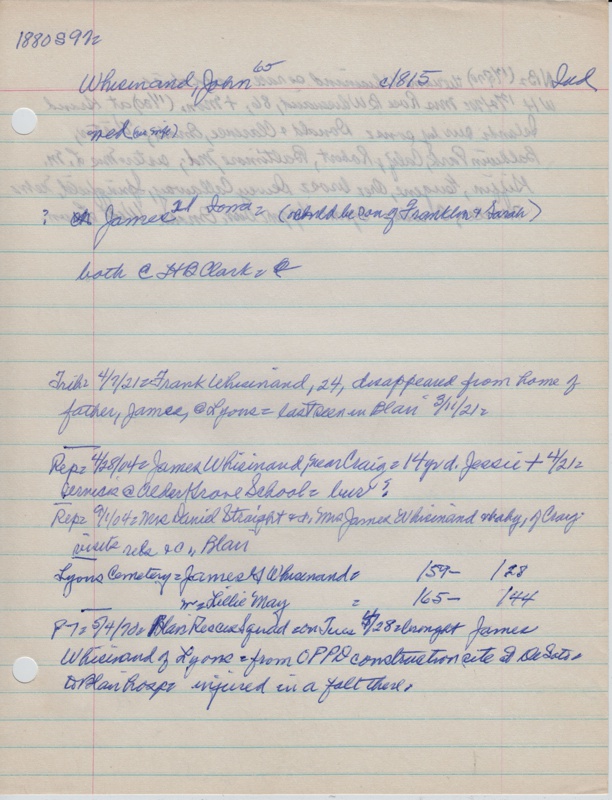 1880 S 9 72
Whisinand, John 65 c1815 Ind
md (no wife)
? ch James 21 Iowa = (ve should be son of Franklin & Sarah)
both C H B Clark =
Trib = 4/7/21 = Frank Whisinand, 24, disappeared from home of
father, James, @ Lyons = last seen in Blair 3/11/21 =
Rep = 4/28/04 = James Whisinand near Craig = 14 yr d. Jessie + 4/21 =
services @ Alder Grove School = bur ?
Rep = 9/1/04 = Mrs Daniel Straight & d. Mrs James Whisinand & baby, of Craig =
visits rels @ Blair
Lyons Cemetery = James A Whisinand = 159- 128
w = Lillie May = 165- 144
P-T = 5/4/70 = Blair Rescue Squad = on Tues 4/28 = brought James
Whisinand of Lyons = from OPPD construction site at DeSoto =
to Blair hosp = injured in a fall there.